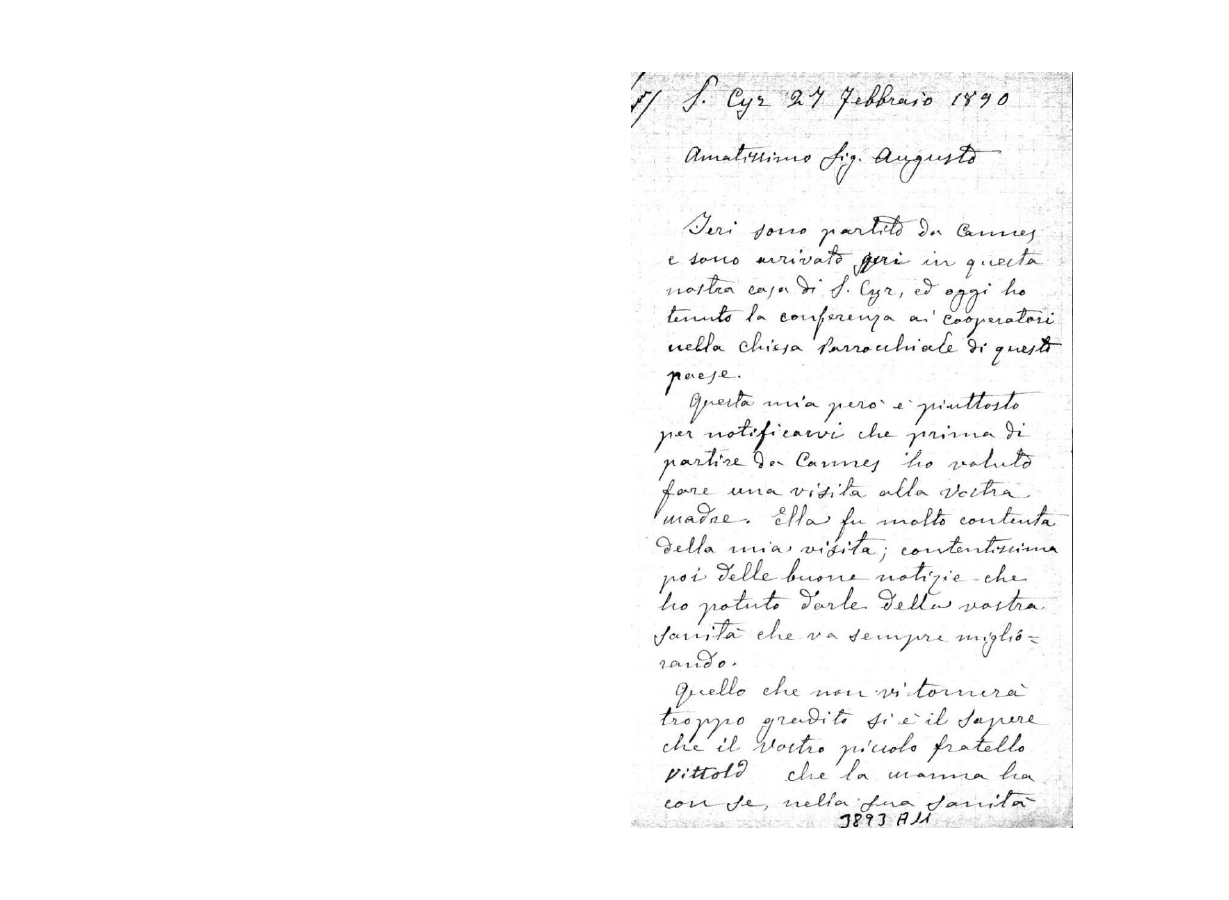 S. Cyr 27 Febbraio 1890
Amatissimo Sig. Augusto
Ieri sono partito da Cannes
e sono arrivato ieri in questa
nostra casa di S. Cyr, ed oggi ho
tenuto la conferenza ai cooperatori
nella chiesa Parrocchiale di questo
paese.
Questa mia però è piuttosto
per notificarvi che prima di
partire da Cannes ho voluto
fare una visita alla vostra
madre. Ella fu molto contenta
della mia visita; contentissima
poi delle buone notizie che
ho potuto darle della vostra
sanità che va sempre miglio=
rando.
Quello che non vi tornerà
troppo gradito si è il sapere
che il vostro piccolo fratello
Vittold che la mamma ha
con se, nella sua sanità
3893 A11